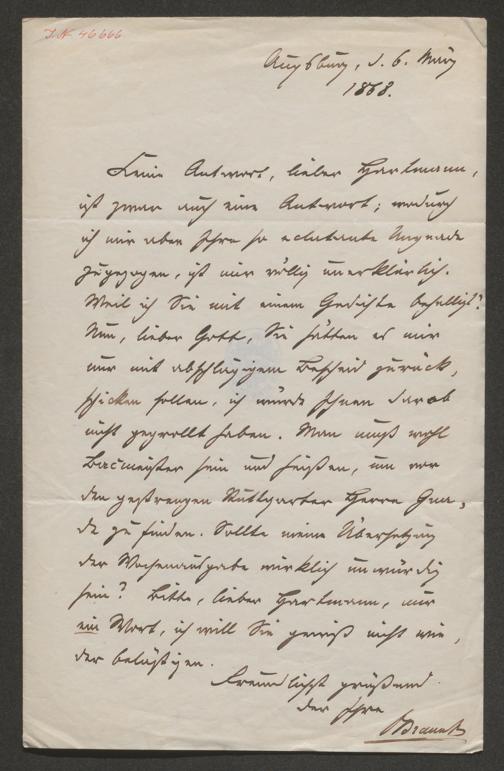 I.N. 46666
Augsburg, d. 6. März
1868.
Keine Antwort, lieber Hartmann,
ist zwar auch eine Antwort; wodurch
ich mir aber Ihre so eclatante Ungnade
zugezogen, ist mir völlig unerklärlich.
Weil ich Sie mit einem Gedichte behelligt?
Nun, lieber Gott, Sie hätten es mir
nur mit abschlägigem Bescheid zurück,
schicken sollen, ich würde Ihnen darob
nicht gegrollt haben. Man muß wohl
Bacmeister sein und heißen, um vor
den gestrengen Stuttgarter Herrn Gna,
de zu finden. Sollte meine Übersetzung
der Wochenausgabe wirklich unwürdig
sein? Bitte, lieber Hartmann, nur
ein Wort, ich will Sie gewiß nicht wie,
der belästigen.
Freundlichst grüßend
der Ihre